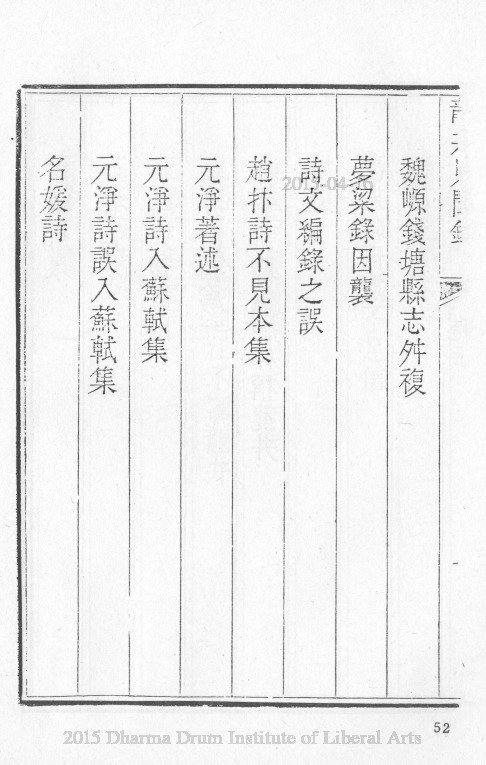 魏㟲錢塘縣志舛複
夢粱錄因襲
詩文編錄之誤
趙抃詩不見本集
元淨著述
元淨詩入蘇軾集
元淨詩誤入蘇軾集
名媛詩
52
2015 Dharma Drum Institute of Liberal Arts